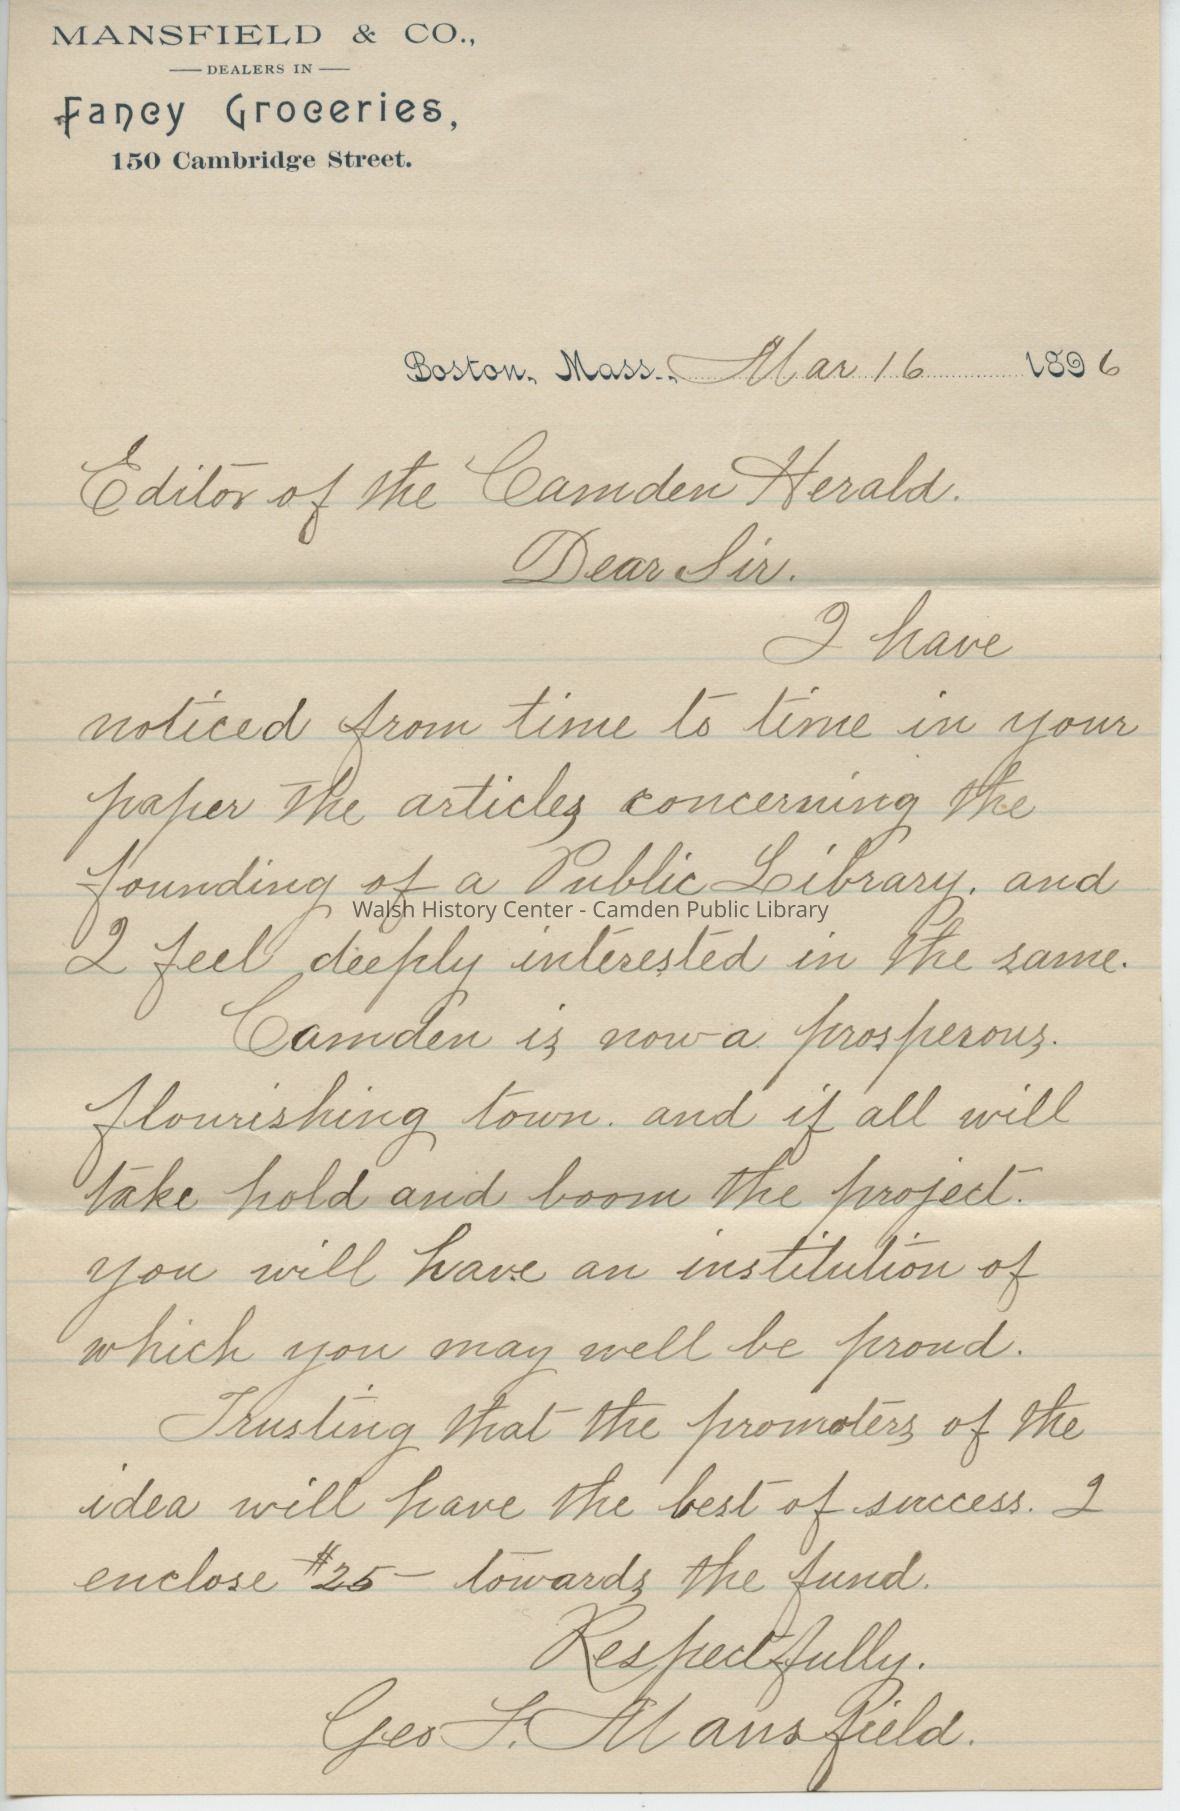 MANSFIELD & CO.,
DEALERS IN
Fancy Groceries,
150 Cambridge Street.
Boston, Mass., Mar 16 1896
Editor of the Camden Herald.
Dear Sir.
I have
noticed from time to time in your
paper the articles concerning the
founding of a Public Library. and
Walsh History Center - Camden Public Library
I feel deeply interested in the same.
Camden is now a prosperous.
flourishing town. and if all will
take hold and boom the project.
you will have an institution of
which you may well be proud.
Trusting that the promoters of the
idea will have the best of success. I
enclose $25- towards the fund.
Respectfully.
Geo F. Mansfield.